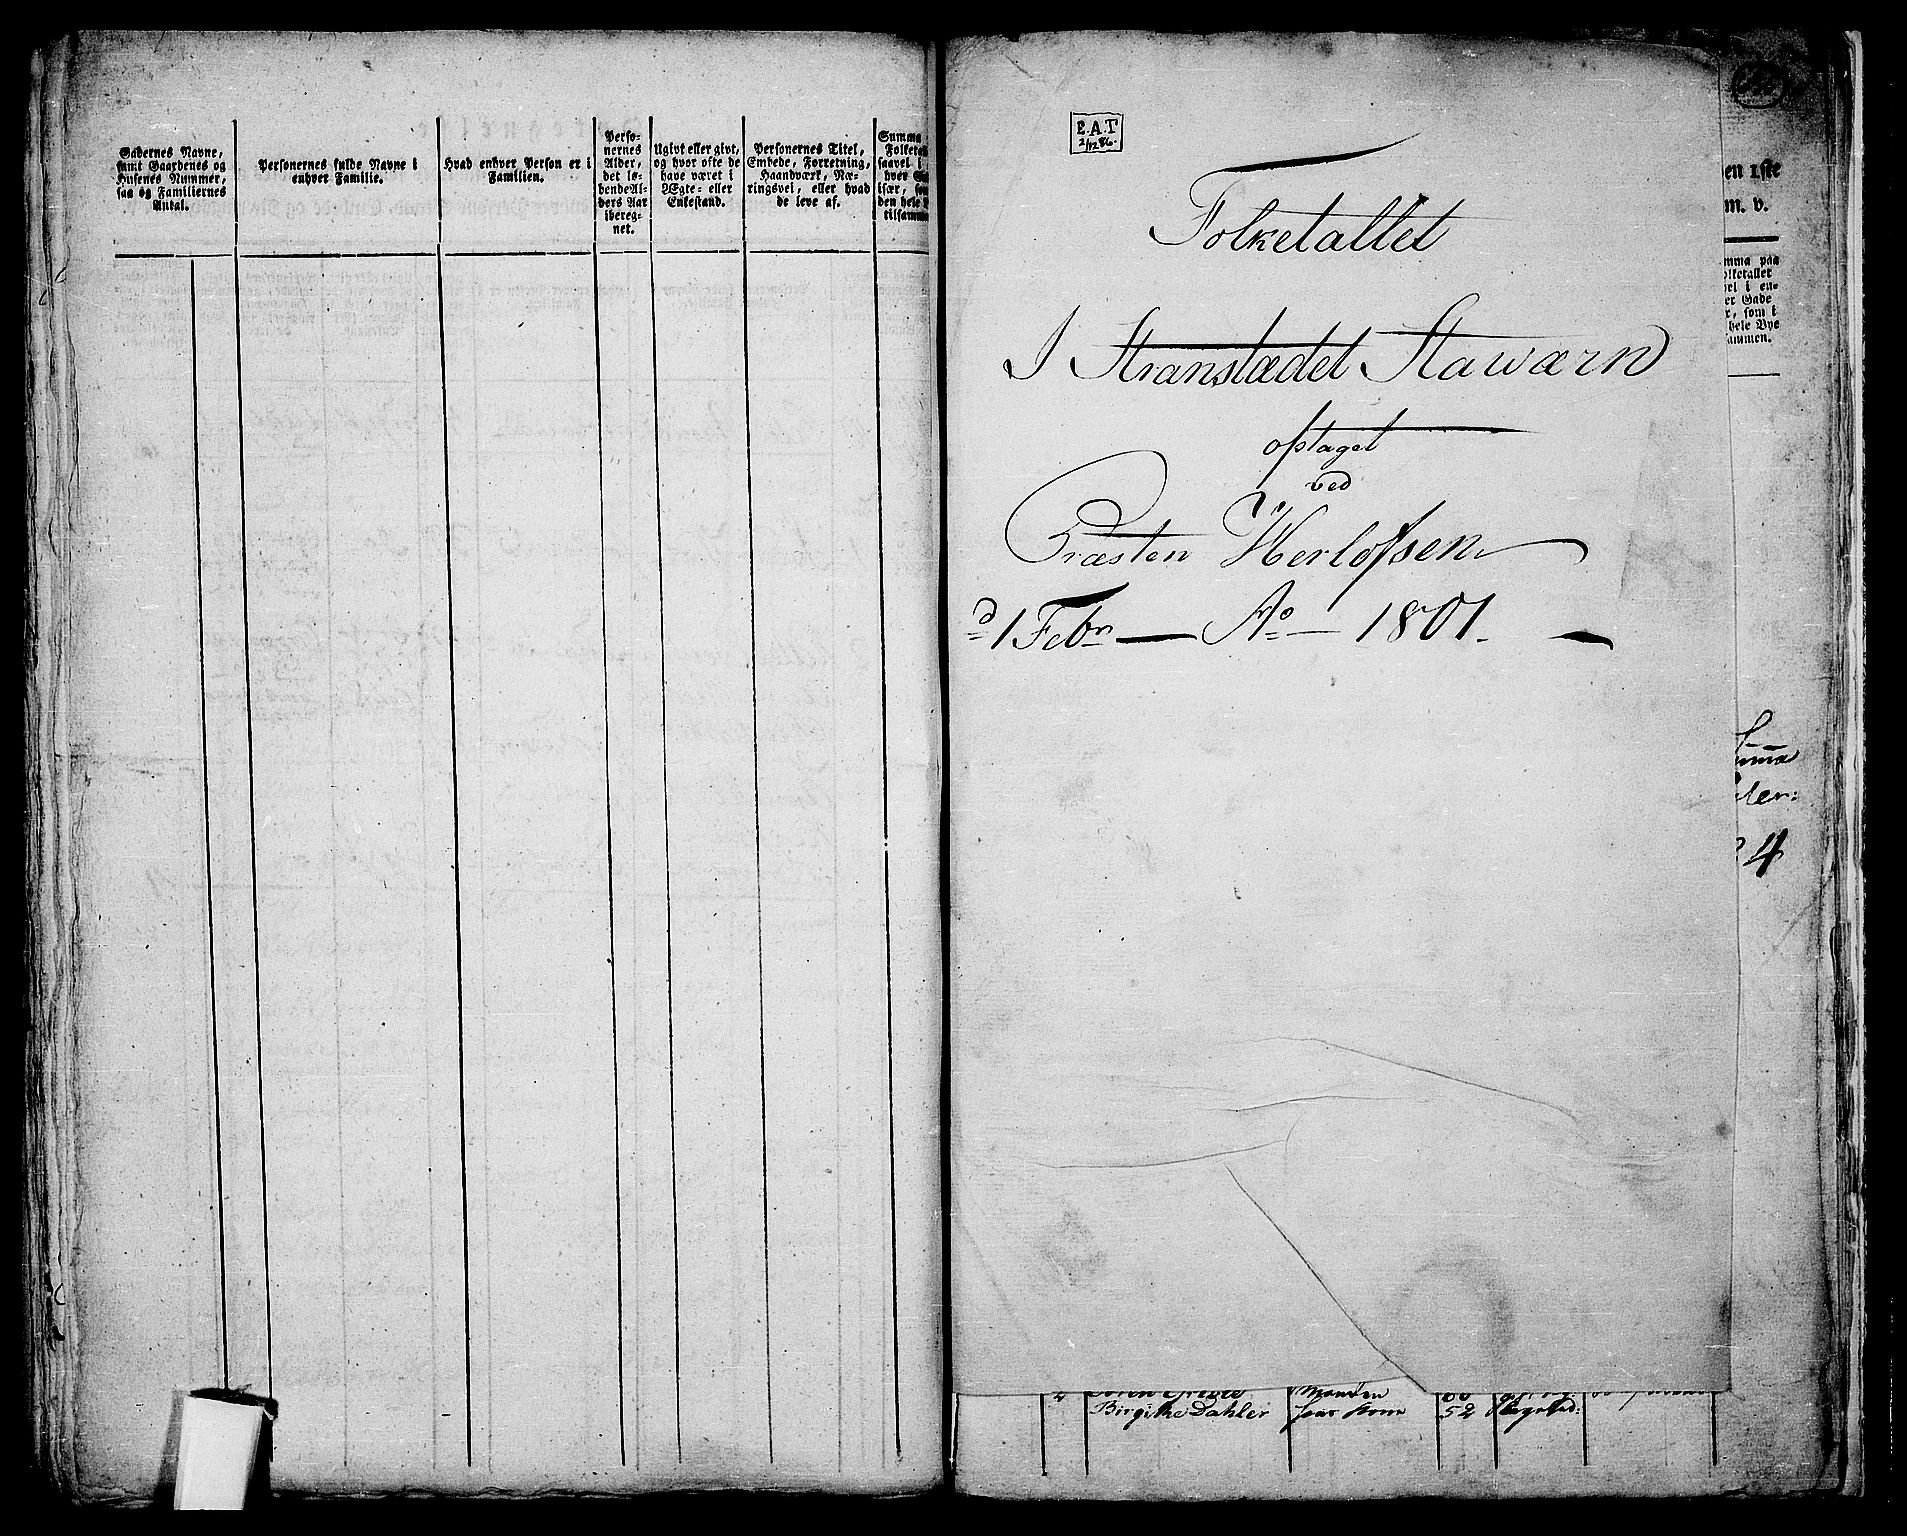 Gadernes Navne,
samt Gaardenes og
Husenes Nummer,
saa og Familiernes
Antal.
Personernes fulde Navne i
enhver Familie.
Hvad enhver Person er i
Familien.
Perso-
nernes
Alder,
det lø-
bende Al-
ders Aar
iberegnet.
Ugivt eller givt,
og hvor ofte de
have været i
Ægte- eller
Enkestand.
Personernes Titel,
Embede, Forretning,
Haandværk, Næ-
ringsvei, eller hvad
de leve af.
Summa
Folketal
saavel i
hver
især, so
den hele
tilsamm
E.A.T
2/12 86.
Folketallet
I Stranstædet Stawærn
optaget
ved
Præsten Herlofsen
d 1 Febr — Ao — 1801.
en 1ste
m. v.
mma paa
olketallet
vel i en-
er Gade
r, som i
hele Bye
ammen.
4
Birgithe Dahler
52